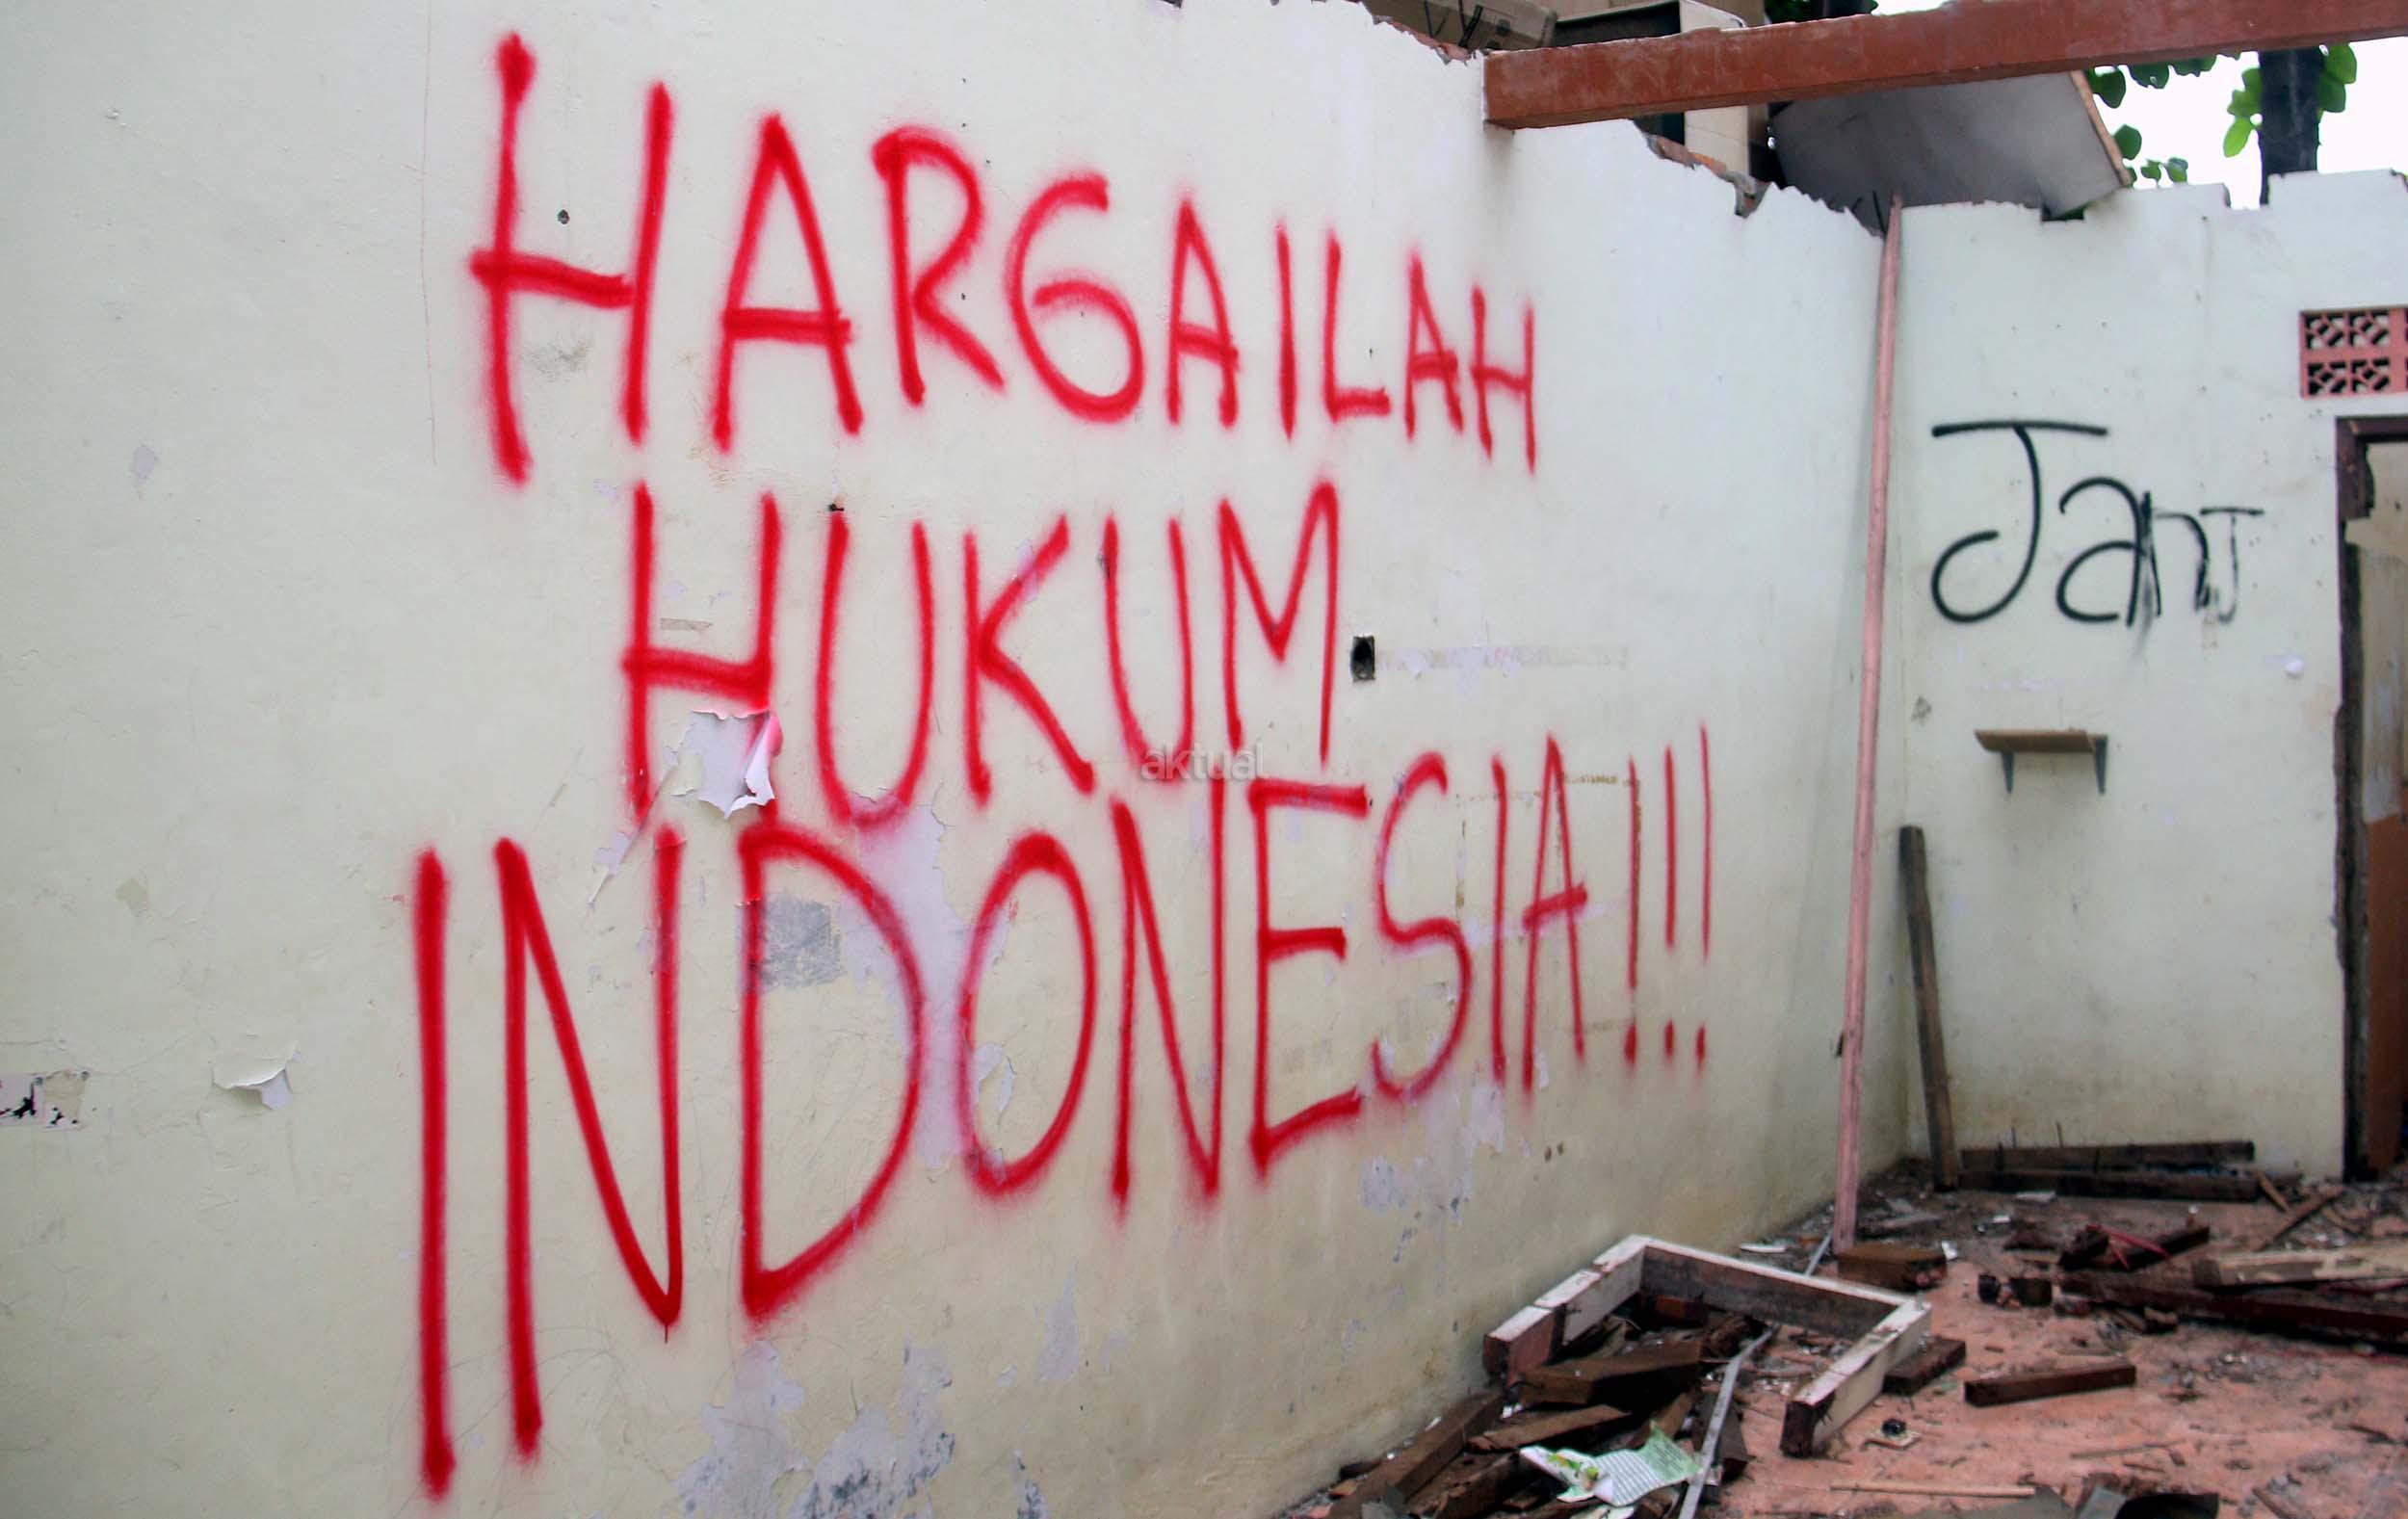 HARGAILAH
HUKUM
INDONESIA!!!
aktual